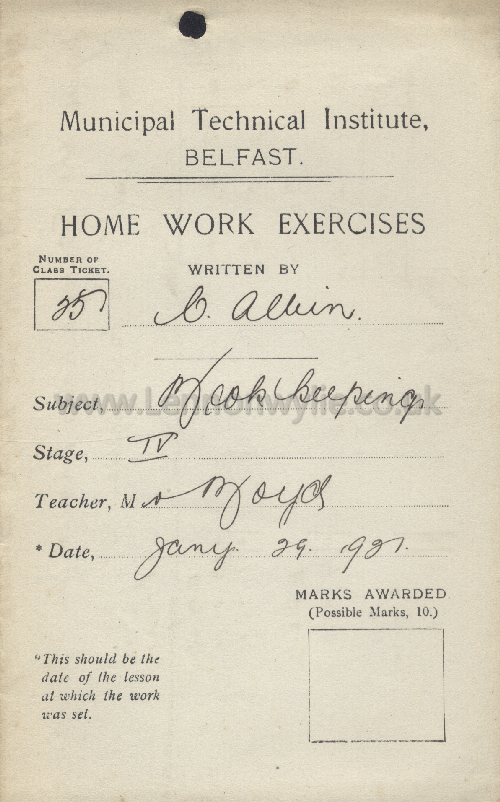 Municipal Technical Institute,
BELFAST.
HOME WORK EXERCISES
NUMBER OF
CLASS TICKET.
WRITTEN BY
25
C. Albin.
www.Lennonwylie.co.uk
Subject, Book keeping
Stage, IV
Teacher, Mr Boyd
* Date, Jany. 29. 1921.
MARKS AWARDED
(Possible Marks, 10.)
*This should be the
date of the lesson
at which the work
was set.